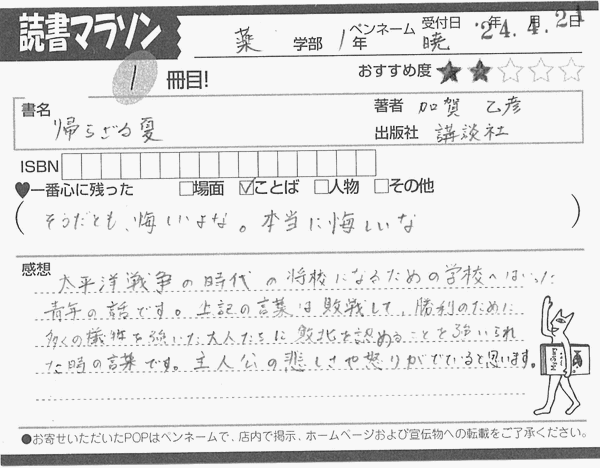 読書マラソン
薬 学部 1年 ペンネーム 暁 受付日 '24年4月21日
1 冊目! おすすめ度 ★★☆☆☆
書名 帰らざる夏 著者 加賀 乙彦
出版社 講談社
ISBN
♥一番心に残った □場面 ☑ことば □人物 □その他
(そうだとも、悔しいよな。本当に悔しいな)
感想
太平洋戦争の時代の将校になるための学校へはいった
青年の話です。上記の言葉は敗戦して、勝利のために
多くの犠牲を強いた大人たちに敗北を認めることを強いられ
た時の言葉です。主人公の悲しさや怒りがでていると思います。
●お寄せいただいたPOPはペンネームで、店内で掲示、ホームページおよび宣伝物への転載をご了承ください。